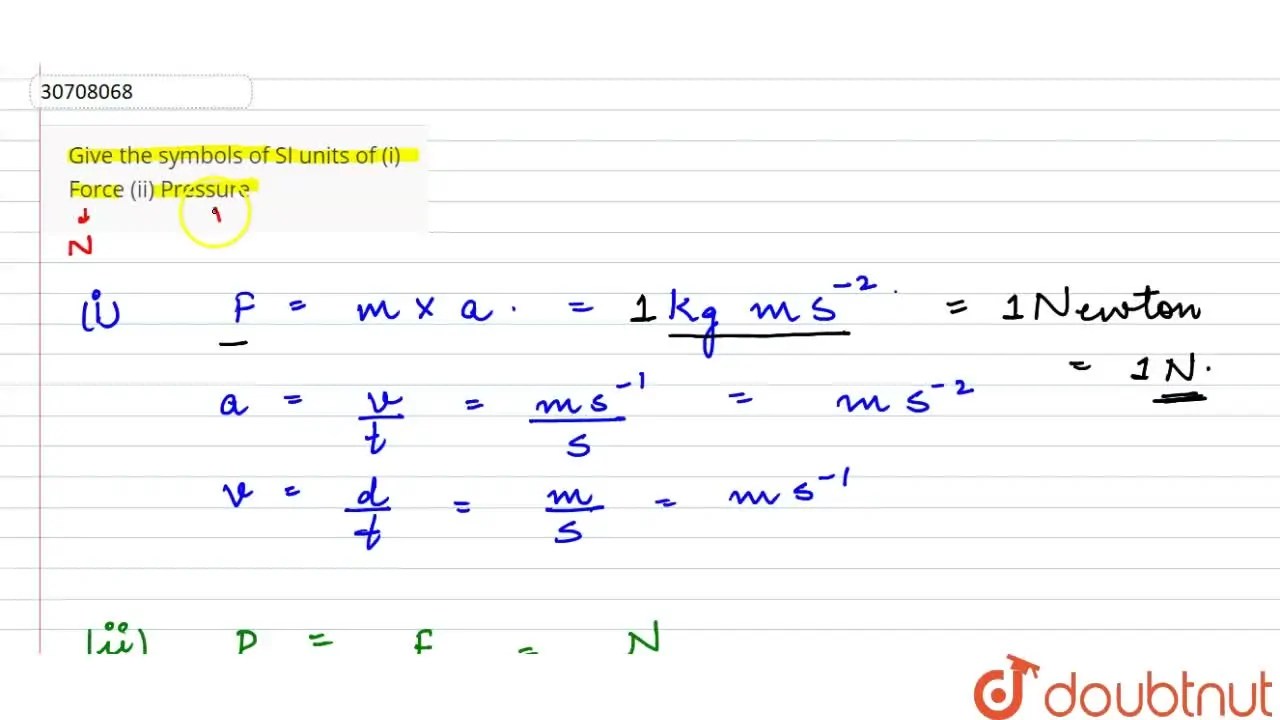 30708068
Give the symbols of SI units of (i)
Force (ii) Pressure
↓
N
(i) F = m × a . = 1 kg m s⁻² = 1 Newton
= 1 N.
a = v/t = m s⁻¹/s = m s⁻²
v = d/t = m/s = m s⁻¹
(ii) P = F = N
doubtnut